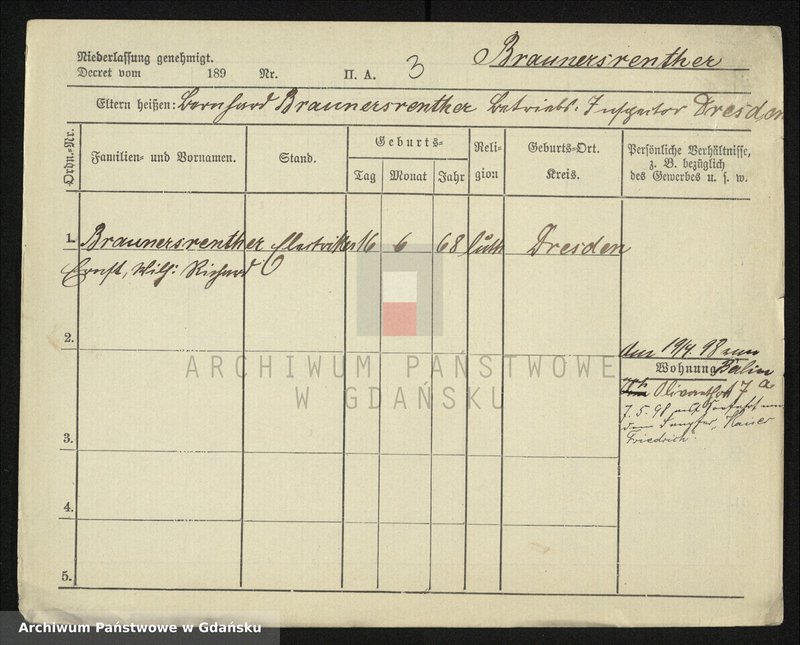 Niederlassung genehmigt.
Decret vom 189 Nr. II. A. 3 Braunersrenther
Eltern heißen: Bernhard Braunersrenther Betriebs-Inspector Dresden
Ordn.-Nr.
Familien- und Vornamen.
Stand.
Geburts-
Tag Monat Jahr
Religion
Geburts-Ort.
Kreis.
Persönliche Verhältnisse,
z. B. bezüglich
des Gewerbes u. s. w.
1. Braunersrenther 16 6 68 luth Dresden
Ernst, Wilh: Richard
2.
Am 19/4. 98 von
Wohnung Berlin
Olivaerthor 7 a
7. 5. 98
dem Dampfer „Kaiser
Friedrich"
3.
4.
5.
ARCHIWUM PAŃSTWOWE
W GDAŃSKU
Archiwum Państwowe w Gdańsku